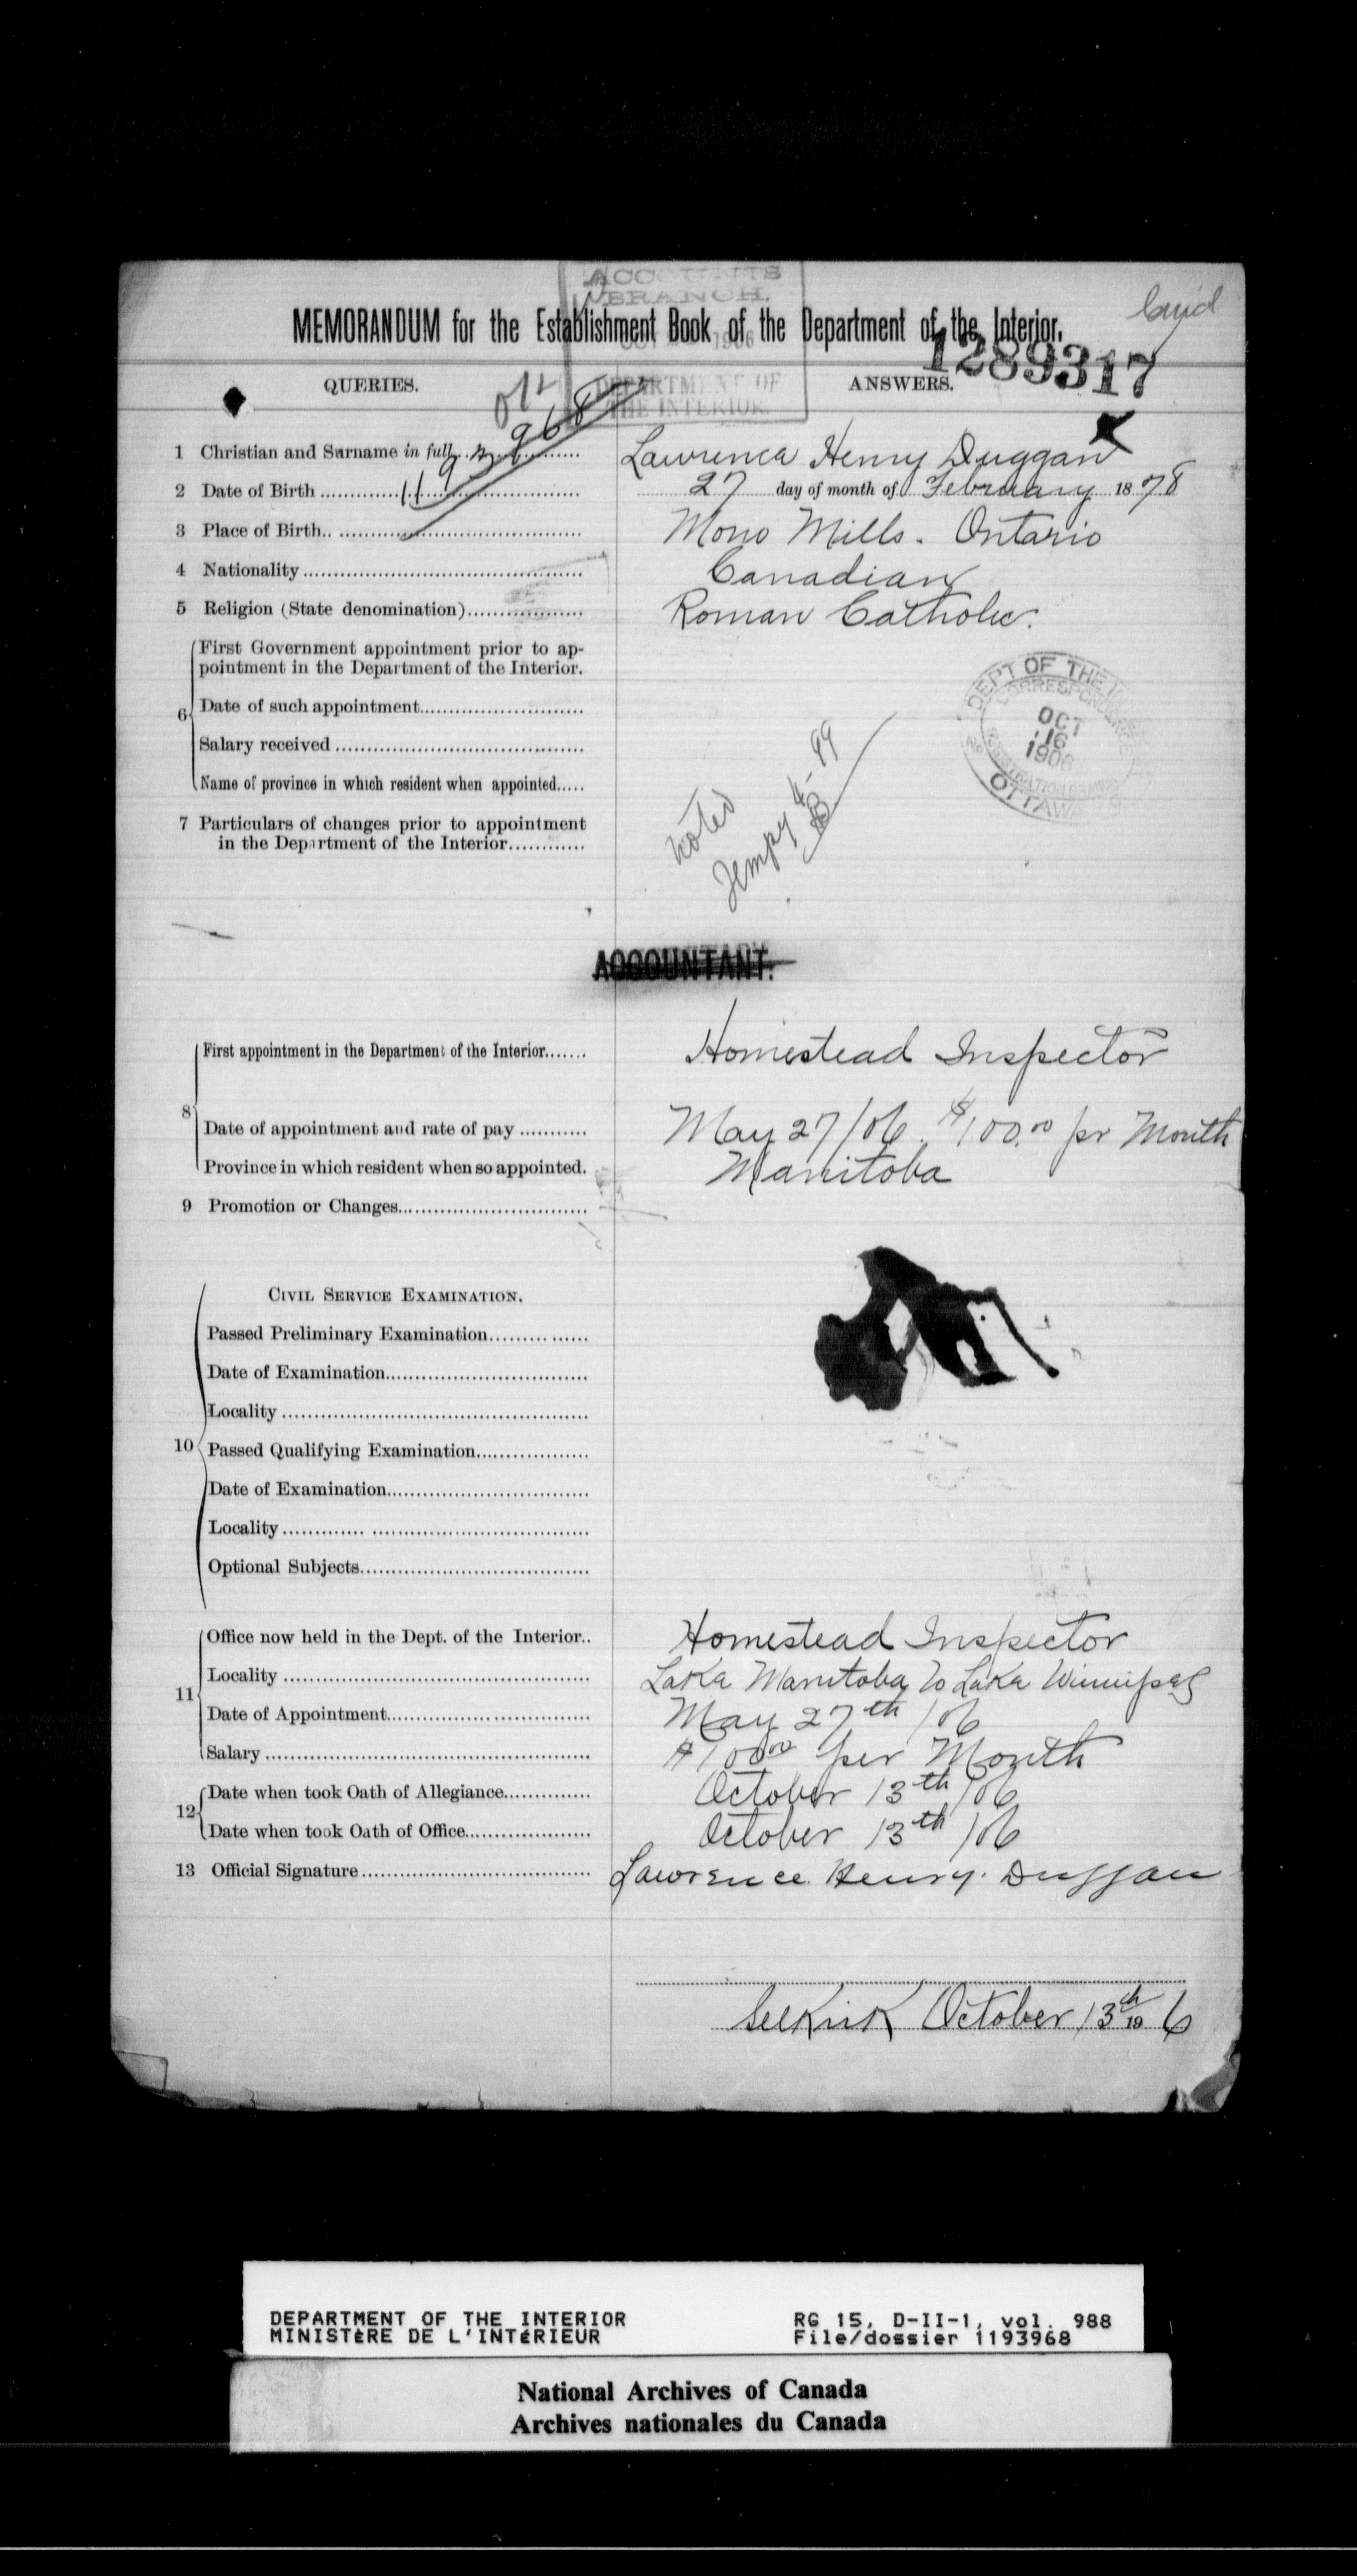 ACCOUNTS
BRANCH.
MEMORANDUM for the Establishment Book of the Department of the Interior.
1906
1289317
DEPARTMENT OF
THE INTERIOR.
QUERIES.
ANSWERS.
1193968
1 Christian and Surname in full
Lawrence Henry Duggan
2 Date of Birth
27 day of month of February 1878
3 Place of Birth
Mono Mills. Ontario
4 Nationality
Canadian
5 Religion (State denomination)
Roman Catholic.
6 First Government appointment prior to ap-
pointment in the Department of the Interior.
Date of such appointment
Salary received
Name of province in which resident when appointed
DEPT OF THE
CORRESPONDENCE
OCT
16
1906
REGISTRATION BRANCH
OTTAWA
noted
Tempy 4-99
7 Particulars of changes prior to appointment
in the Department of the Interior
ACCOUNTANT.
8 First appointment in the Department of the Interior
Homestead Inspector
Date of appointment and rate of pay
May 27/06. $100.00 pr Month
Province in which resident when so appointed.
Manitoba
9 Promotion or Changes
CIVIL SERVICE EXAMINATION.
10 Passed Preliminary Examination
Date of Examination
Locality
Passed Qualifying Examination
Date of Examination
Locality
Optional Subjects
11 Office now held in the Dept. of the Interior..
Homestead Inspector
Locality
Lake Manitoba to Lake Winnipeg
Date of Appointment
May 27th /06
Salary
$100.00 per Month
12 Date when took Oath of Allegiance
October 13th /06
Date when took Oath of Office
October 13th /06
13 Official Signature
Lawrence Henry Duggan
Selkirk October 13th 19 6
DEPARTMENT OF THE INTERIOR
MINISTÈRE DE L'INTÉRIEUR
RG 15, D-II-1, vol. 988
File/dossier 1193968
National Archives of Canada
Archives nationales du Canada